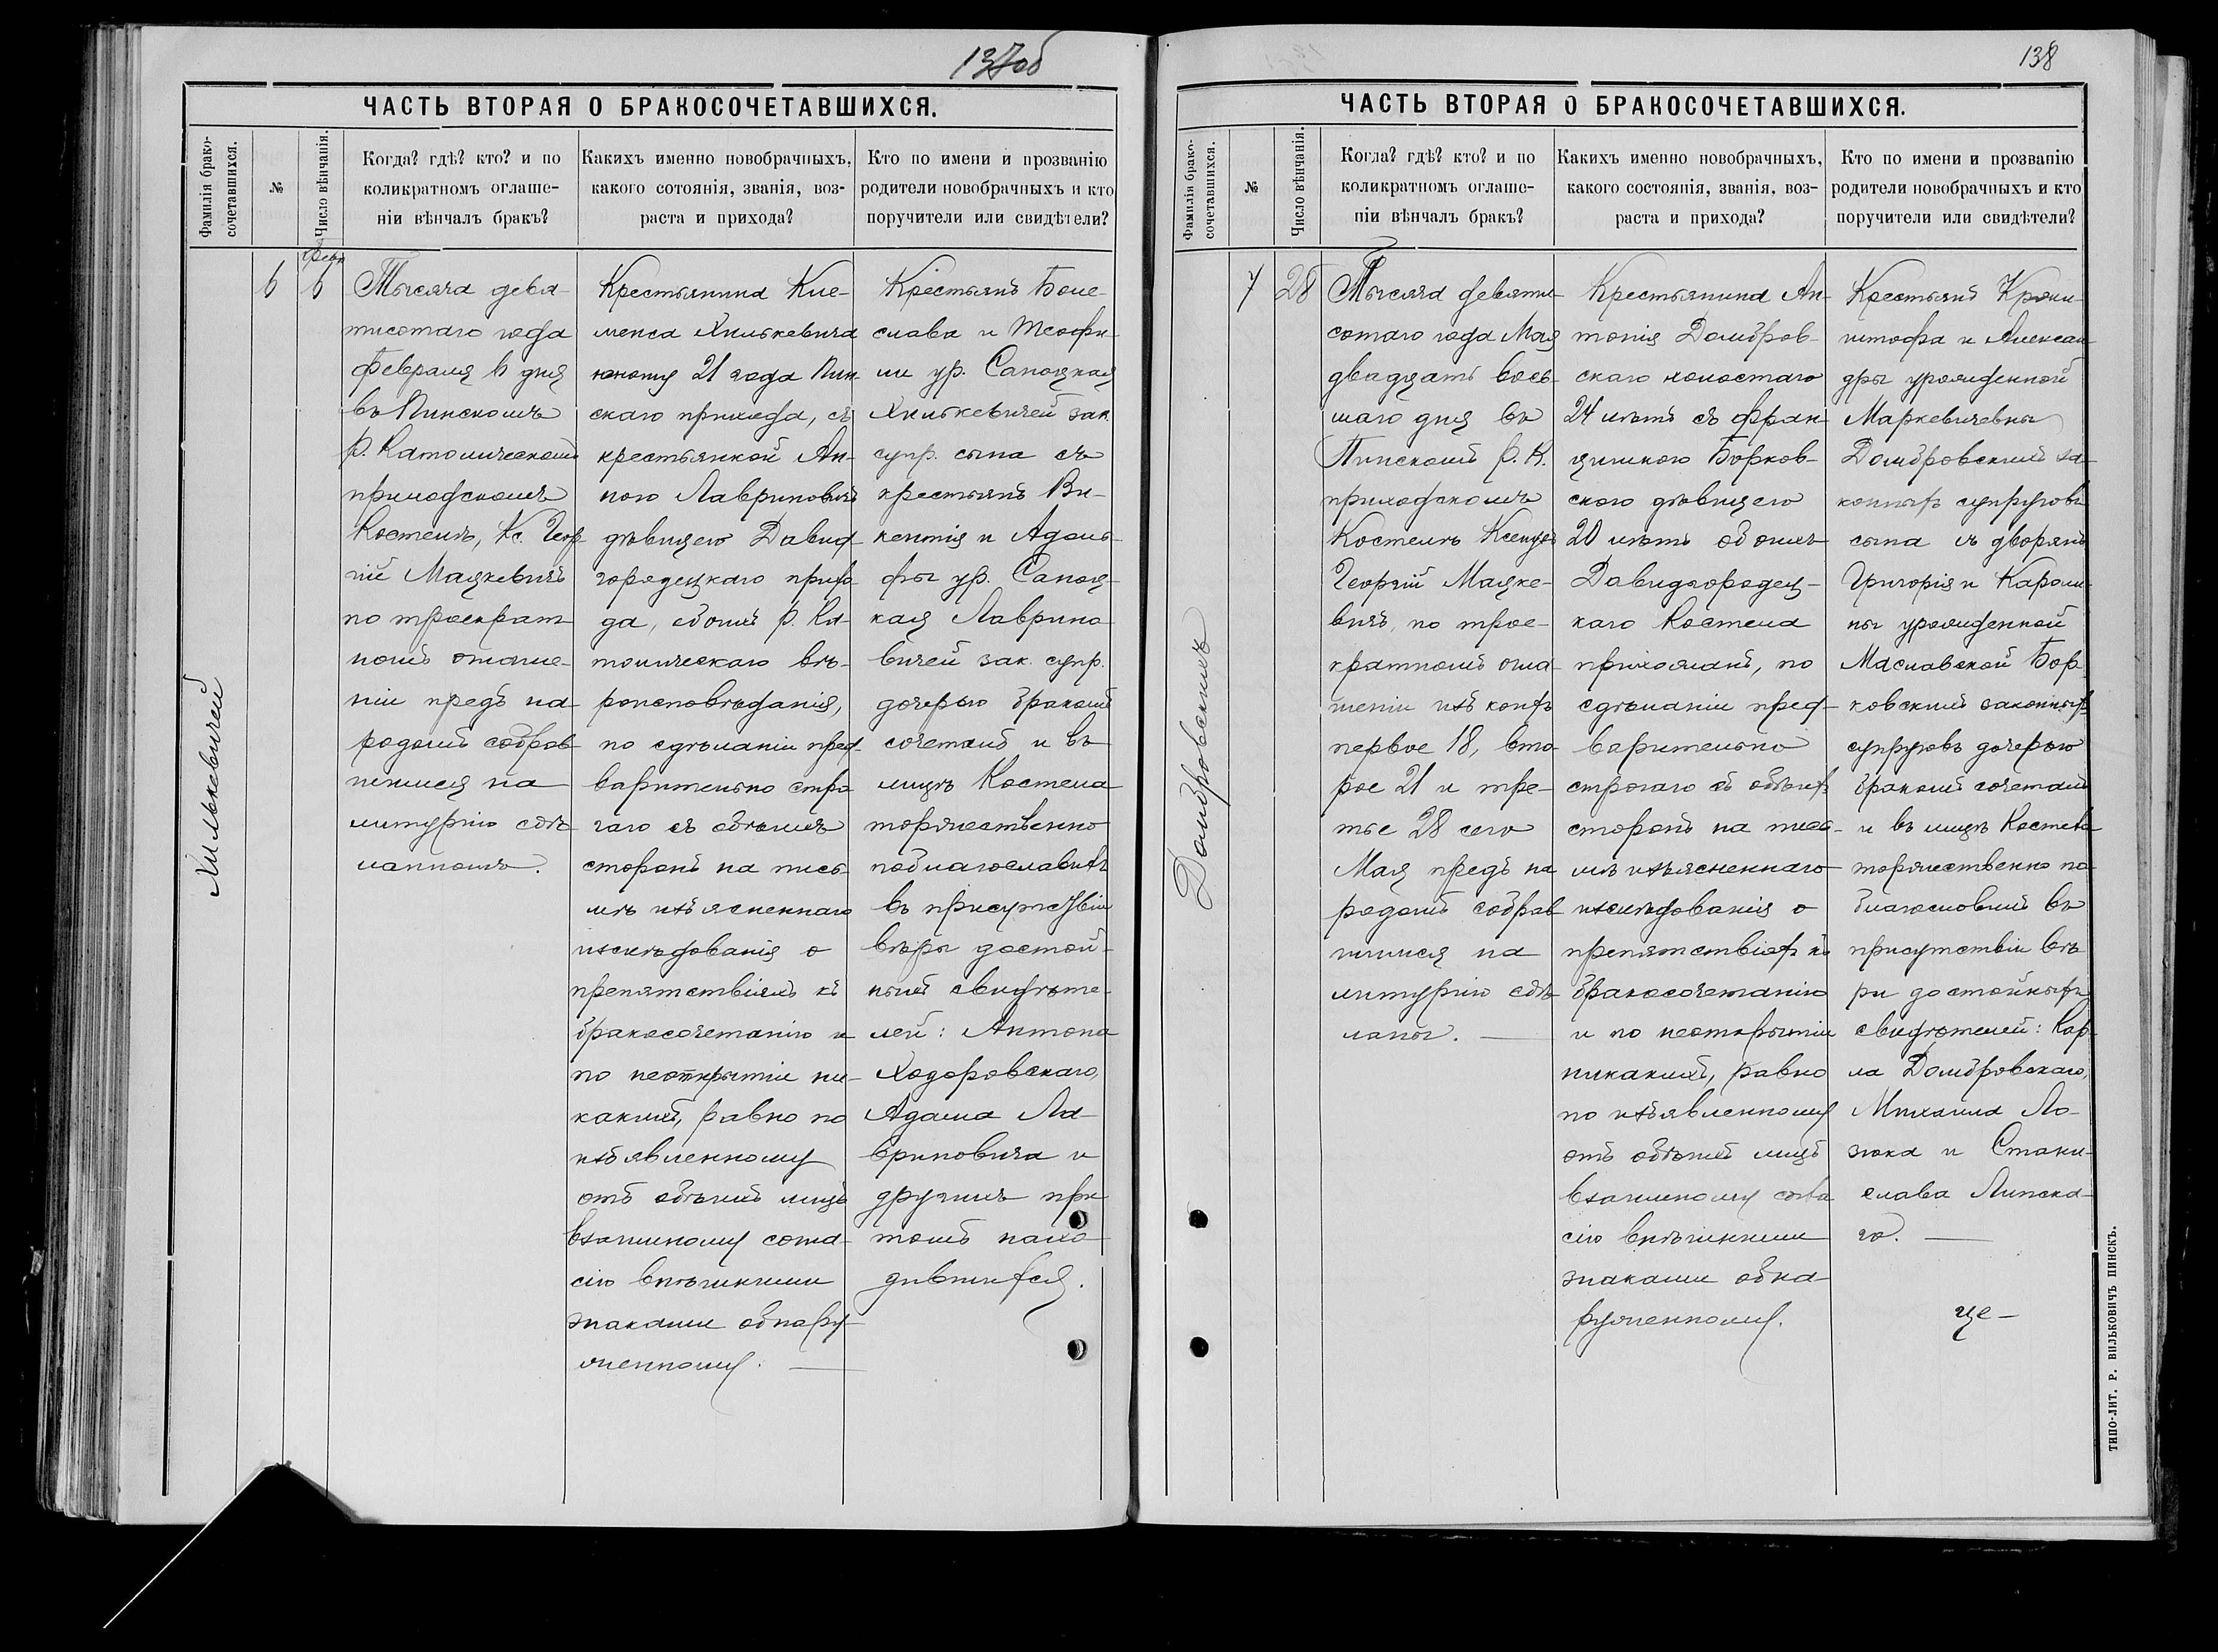 137об
ЧАСТЬ ВТОРАЯ О БРАКОСОЧЕТАВШИХСЯ.
Фамилія брако-
сочетавшихся.
№
Число вѣнчанія.
Когда? гдѣ? кто? и по
коликратномъ оглаше-
ніи вѣнчалъ бракъ?
Какихъ именно новобрачныхъ,
какого сотоянія, званія, воз-
раста и прихода?
Кто по имени и прозванію
родители новобрачныхъ и кто
поручители или свидѣтели?
Хилькевичей
6
Февр
6
Тысяча девя-
тисотаго года
Февраля 6 дня
въ Пинскомъ
Р. Католическомъ
приходскомъ
Костелѣ, Кс. Геор-
гій Мацкевичъ
по троекрат-
номъ оглаше-
ніи предъ на-
родомъ собрав-
шимся на
литургію сдѣ-
ланномъ.
Крестьянина Кле-
менса Хилькевича
юношу 21 года Пин-
скаго прихода, съ
крестьянкой Ан-
ною Лавриновичъ
дѣвицею Давид-
городецкаго прихо-
да, обоихъ р. Ка-
толическаго вѣ-
роисповѣданія,
по сдѣланіи пред-
варительно стро-
гаго съ обѣихъ
сторонъ на пись-
мѣ изъясненнаго
изслѣдованія о
препятствіяхъ къ
бракосочетанію и
по неоткрытіи ни-
какихъ, равно по
изъявленному
отъ обѣихъ лицъ
взаимному согла-
сію внѣшними
знаками обнару-
женному.
Крестьянъ Боле-
слава и Теофи-
ли ур. Сапоцкая
Хилькевичей зак.
супр. сына съ
крестьянъ Ви-
кентія и Адоль-
фы ур. Сапоц-
кая Лаврино-
вичей зак. супр.
дочерью бракомъ
сочеталъ и въ
лицѣ Костела
торжественно
поблагославилъ
въ присутствіи
вѣры достой-
ныхъ свидѣте-
лей: Антона
Ходоровскаго,
Адама Ла-
вриновича и
другихъ при
томъ нахо-
дившихся.
138
ЧАСТЬ ВТОРАЯ О БРАКОСОЧЕТАВШИХСЯ.
Фамилія брако-
сочетавшихся.
№
Число вѣнчанія.
Когда? гдѣ? кто? и по
коликратномъ оглаше-
ніи вѣнчалъ бракъ?
Какихъ именно новобрачныхъ,
какого состоянія, званія, воз-
раста и прихода?
Кто по имени и прозванію
родители новобрачныхъ и кто
поручители или свидѣтели?
Домбровскихъ
7
28
Тысяча девяти-
сотаго года Мая
двадцать вось-
маго дня въ
Пинскомъ Р. К.
приходскомъ
Костелѣ Ксендзъ
Георгій Мацке-
вичъ, по трое-
кратномъ огла-
шеніи изъ коихъ
первое 18, вто-
рое 21 и тре-
тье 28 сего
Мая предъ на-
родомъ собрав-
шимся на
литургію сдѣ-
ланы.
Крестьянина Ан-
тонія Домбров-
скаго холостаго
24 лѣтъ съ Фран-
цишкою Борков-
скою дѣвицею
20 лѣтъ обоихъ
Давидгородец-
каго Костела
прихожанъ, по
сдѣланіи пред-
варительно
строгаго съ обѣихъ
сторонъ на пись-
мѣ изъясненнаго
изслѣдованія о
препятствіяхъ къ
бракосочетанію
и по неоткрытіи
никакихъ, равно
по изъявленному
отъ обѣихъ лицъ
взаимному согла-
сію внѣшними
знаками обна-
руженному.
Крестьянъ Крżи-
штофа и Алексан-
дры урожденной
Маркевичевны
Домбровскихъ за-
конныхъ супруговъ
сына съ дворянъ
Григорія и Кароли-
ны урожденной
Маславской Бор-
ковскихъ законныхъ
супруговъ дочерью
бракомъ сочеталъ
и въ лицѣ Костела
торжественно по-
благословилъ въ
присутствіи вѣ-
ры достойныхъ
свидѣтелей: Кар-
ла Домбровскаго,
Михаила Ло-
зюка и Стани-
слава Липска-
го.
ТИПО-ЛИТ. Р. ВИЛЬКОВИЧЪ ПИНСКЪ.